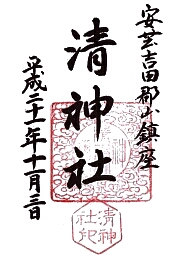 安芸吉田郡山鎮座
清神社
平成二十一年十一月三日
清神社印